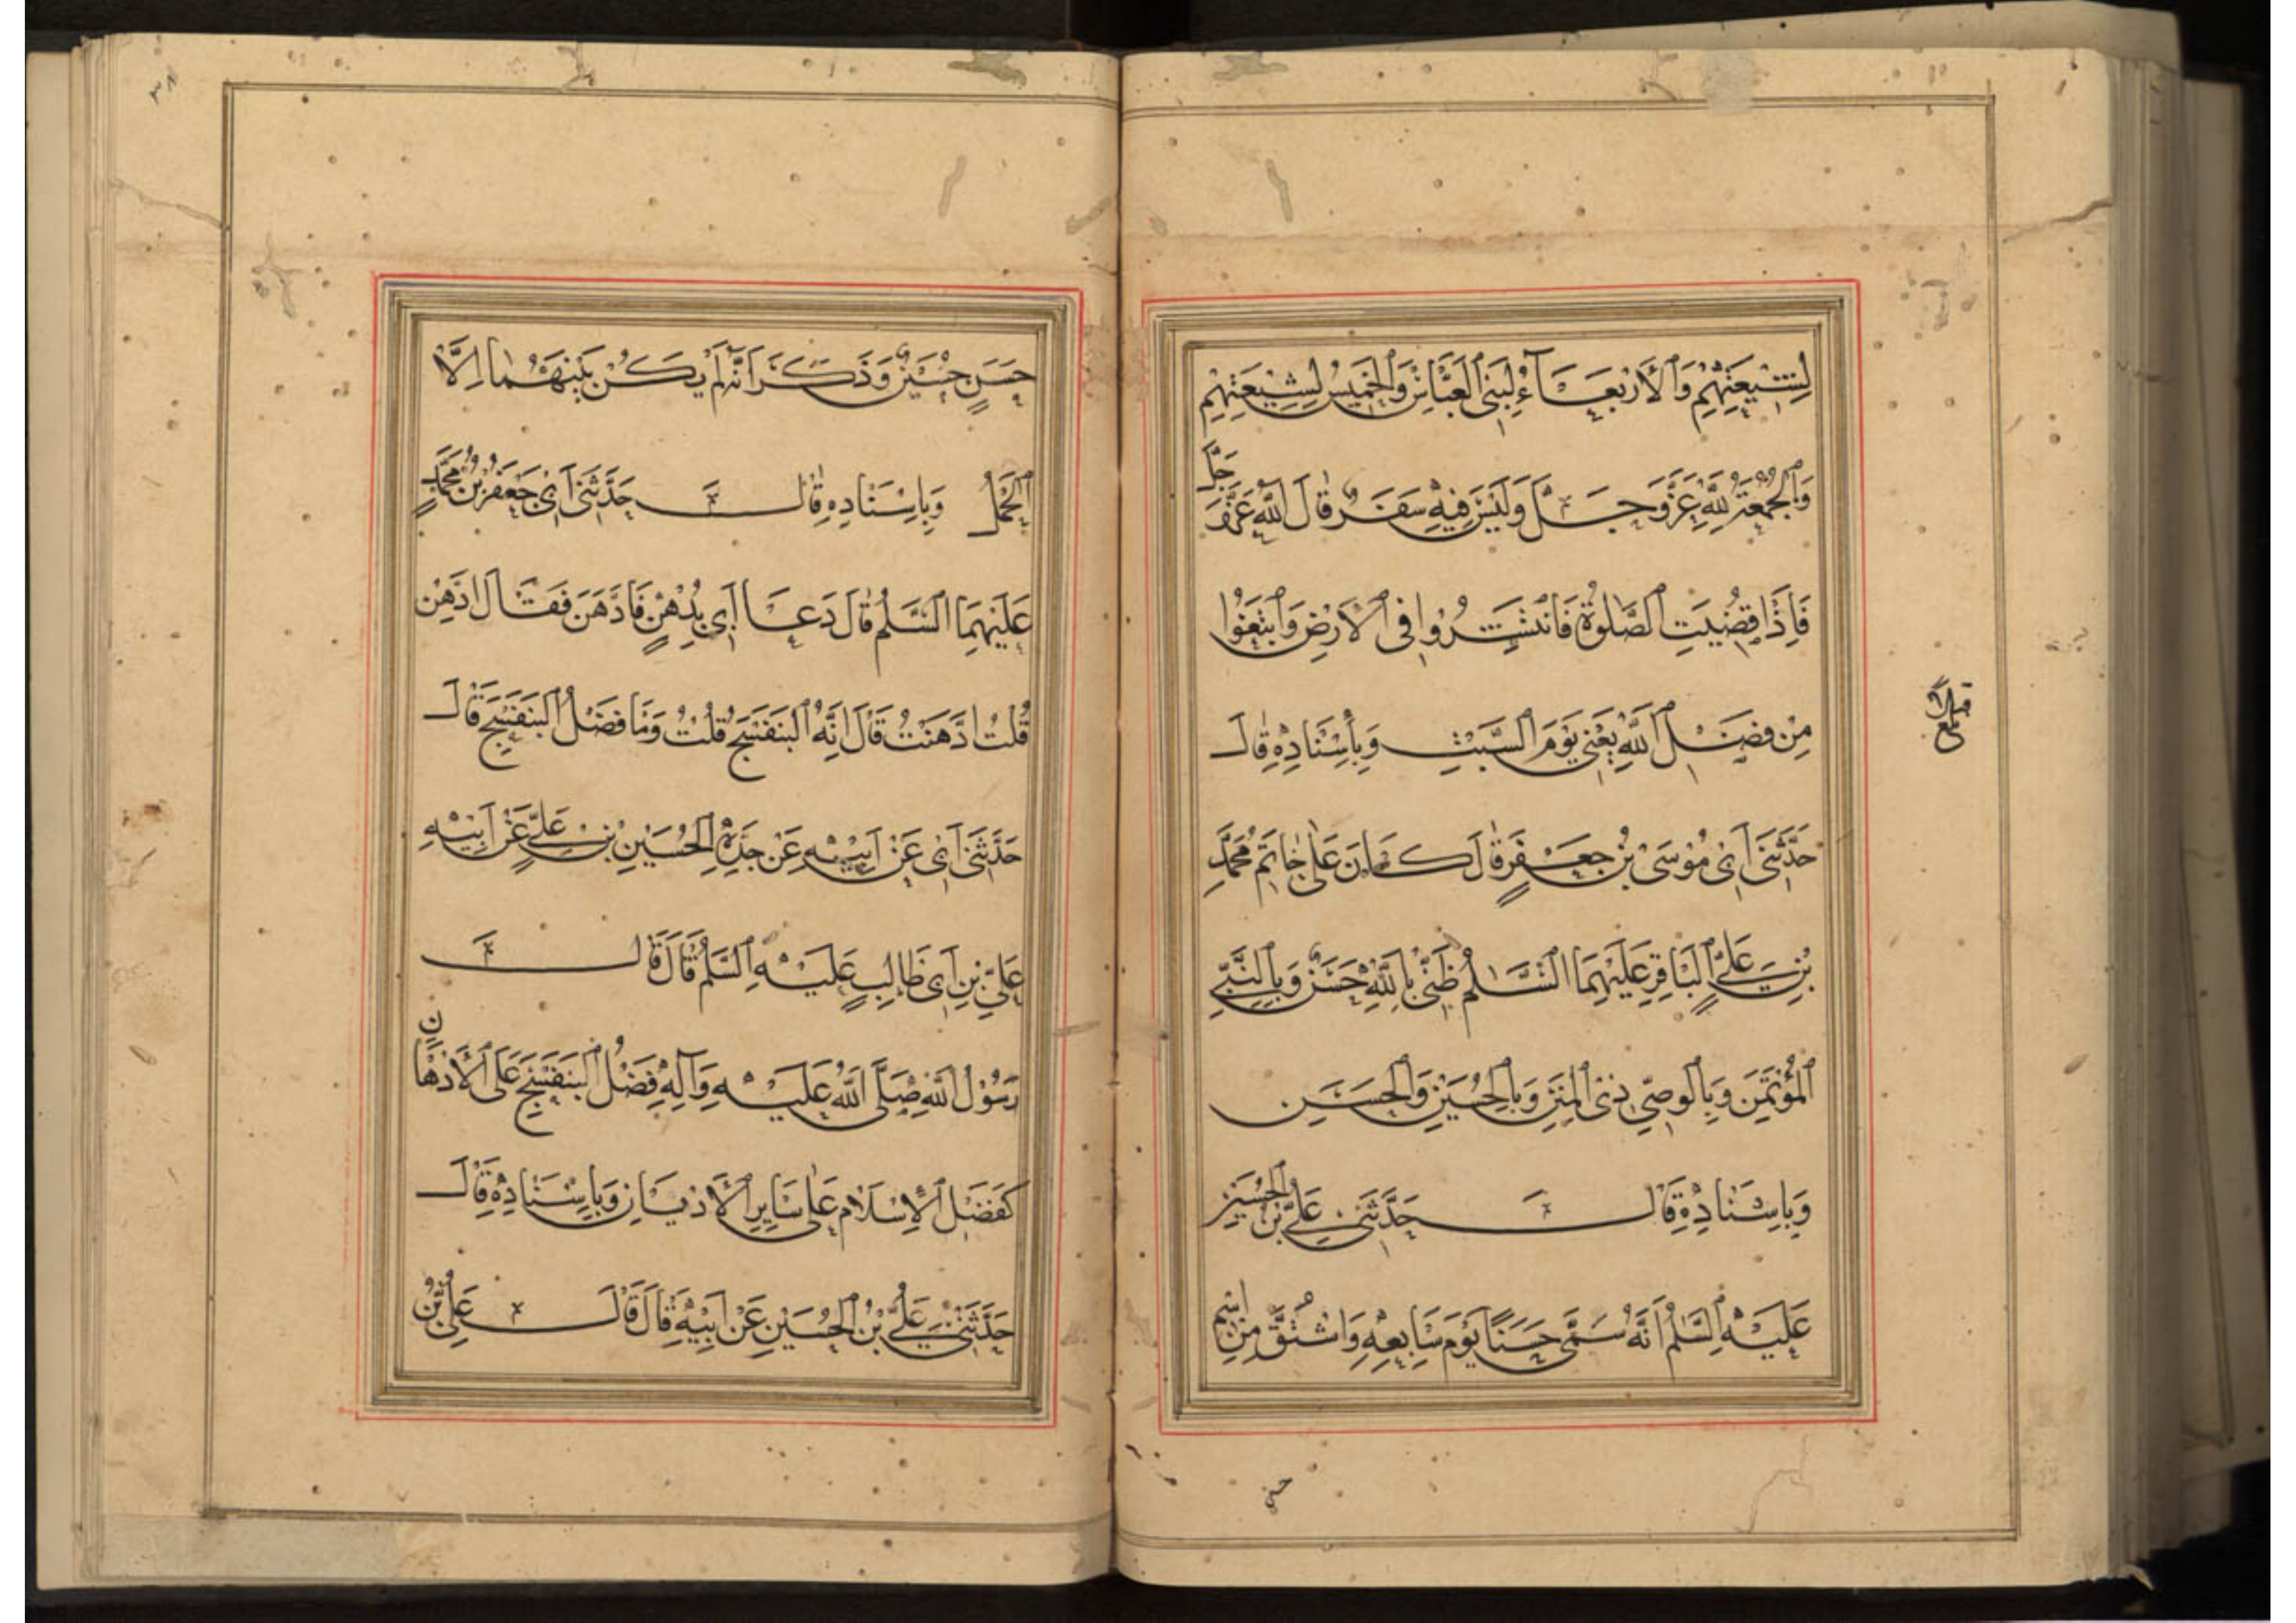 لِشِيعَتِهِمْ وَالْأَرْبَعَاءُ لِبَنِي الْعَبَّاسِ وَالْخَمِيسُ لِشِيعَتِهِمْ
وَالْجُمُعَةُ لِلّٰهِ عَزَّ وَجَلَّ وَلَيْسَ فِيهِ سَفَرٌ قَالَ اللّٰهُ عَزَّ وَجَلَّ
فَإِذَا قُضِيَتِ الصَّلٰوةُ فَانْتَشِرُوا فِي الْأَرْضِ وَابْتَغُوا
مِنْ فَضْلِ اللّٰهِ يَعْنِي يَوْمَ السَّبْتِ وَبِإِسْنَادِهِ قَالَ
حَدَّثَنِي أَبِي مُوسَى بْنُ جَعْفَرٍ قَالَ كَانَ عَلٰى خَاتَمِ مُحَمَّدِ
بْنِ عَلِيٍّ الْبَاقِرِ عَلَيْهِمَا السَّلَامُ ظَنِّي بِاللّٰهِ حَسَنٌ وَبِالنَّبِيِّ
الْمُؤْتَمَنِ وَبِالْوَصِيِّ ذِي الْمِنَنِ وَبِالْحُسَيْنِ وَالْحَسَنِ
وَبِإِسْنَادِهِ قَالَ حَدَّثَنِي عَلِيُّ بْنُ الْحُسَيْنِ
عَلَيْهِ السَّلَمُ أَنَّهُ سَمَّى حَسَنًا يَوْمَ سَابِعِهِ وَاشْتُقَّ مِنِ اسْمِ
حَسَنٍ حُسَيْنٌ وَذَكَرَ أَنَّهُ لَمْ يَكُنْ بَيْنَهُمَا إِلَّا
الْحَمْلُ وَبِإِسْنَادِهِ قَالَ حَدَّثَنِي أَبِي جَعْفَرُ بْنُ مُحَمَّدٍ
عَلَيْهِمَا السَّلَمُ قَالَ دَعَا أَبِي بِدُهْنٍ فَادَّهَنَ فَقَالَ ادَّهِنْ
قُلْتُ ادَّهَنْتُ قَالَ إِنَّهُ الْبَنَفْسَجُ قُلْتُ وَمَا فَضْلُ الْبَنَفْسَجِ قَالَ
حَدَّثَنِي أَبِي عَنْ أَبِيهِ عَنْ جَدِّهِ الْحُسَيْنِ بْنِ عَلِيٍّ عَنْ أَبِيهِ
عَلِيِّ بْنِ أَبِي طَالِبٍ عَلَيْهِ السَّلَمُ قَالَ قَالَ
رَسُولُ اللّٰهِ صَلَّى اللّٰهُ عَلَيْهِ وَآلِهِ فَضْلُ الْبَنَفْسَجِ عَلَى الْأَدْهَانِ
كَفَضْلِ الْإِسْلَامِ عَلٰى سَايِرِ الْأَدْيَانِ وَبِإِسْنَادِهِ قَالَ
حَدَّثَنِي عَلِيُّ بْنُ الْحُسَيْنِ عَنْ أَبِيهِ قَالَ قَالَ عَلِيُّ بْنُ